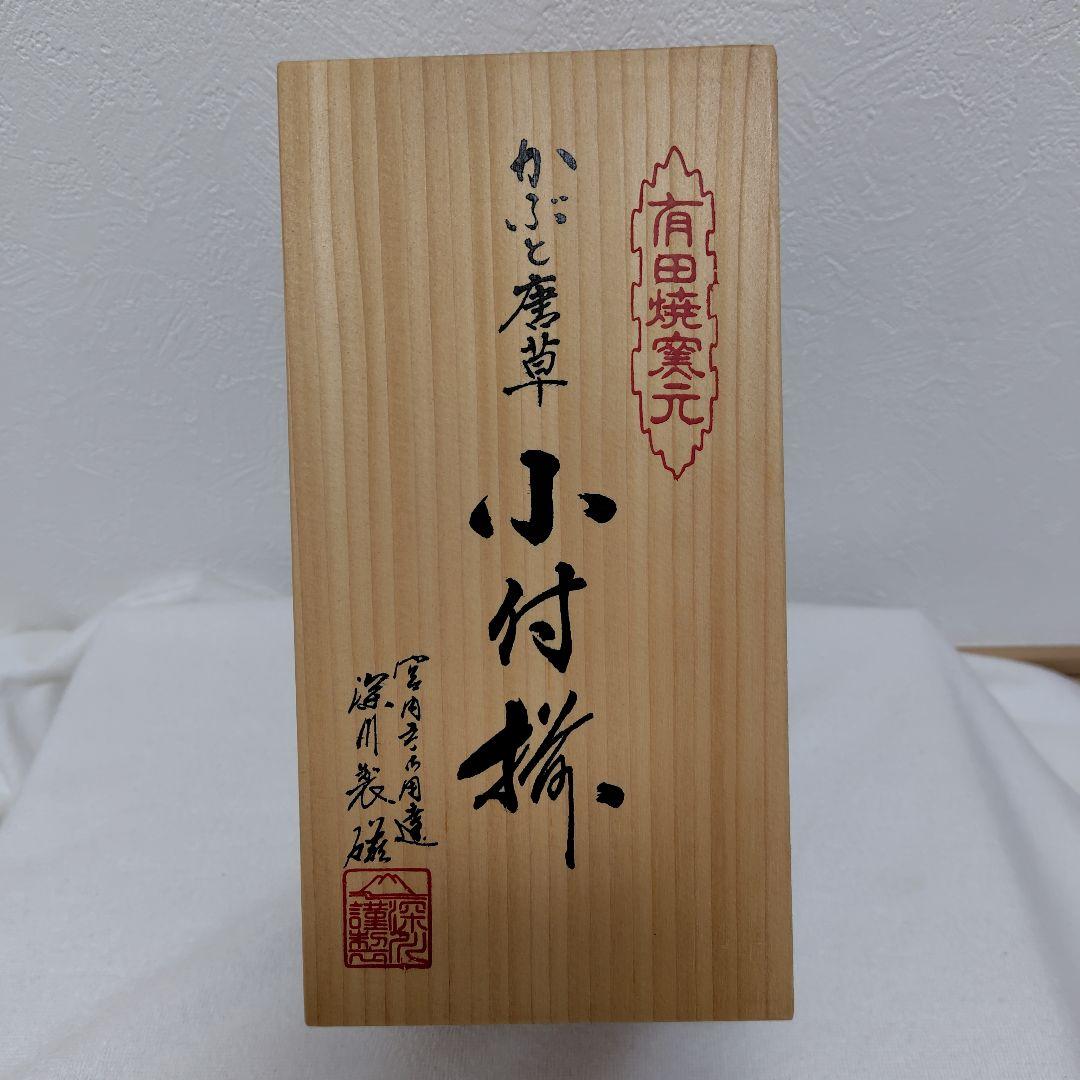 有田焼窯元
かぶと唐草
小付揃
宮内庁御用達
深川製磁
深川
謹製